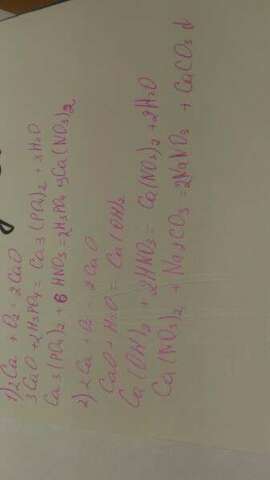 1) 2Ca + O2 = 2CaO
3CaO + 2H3PO4 = Ca3(PO4)2 + 3H2O
Ca3(PO4)2 + 6HNO3 = 2H3PO4 3Ca(NO3)2
2) 2Ca + O2 - 2CaO
CaO + H2O = Ca(OH)2
Ca(OH)2 + 2HNO3 = Ca(NO3)2 + 2H2O
Ca(NO3)2 + Na2CO3 = 2NaNO3 + CaCO3 ↓